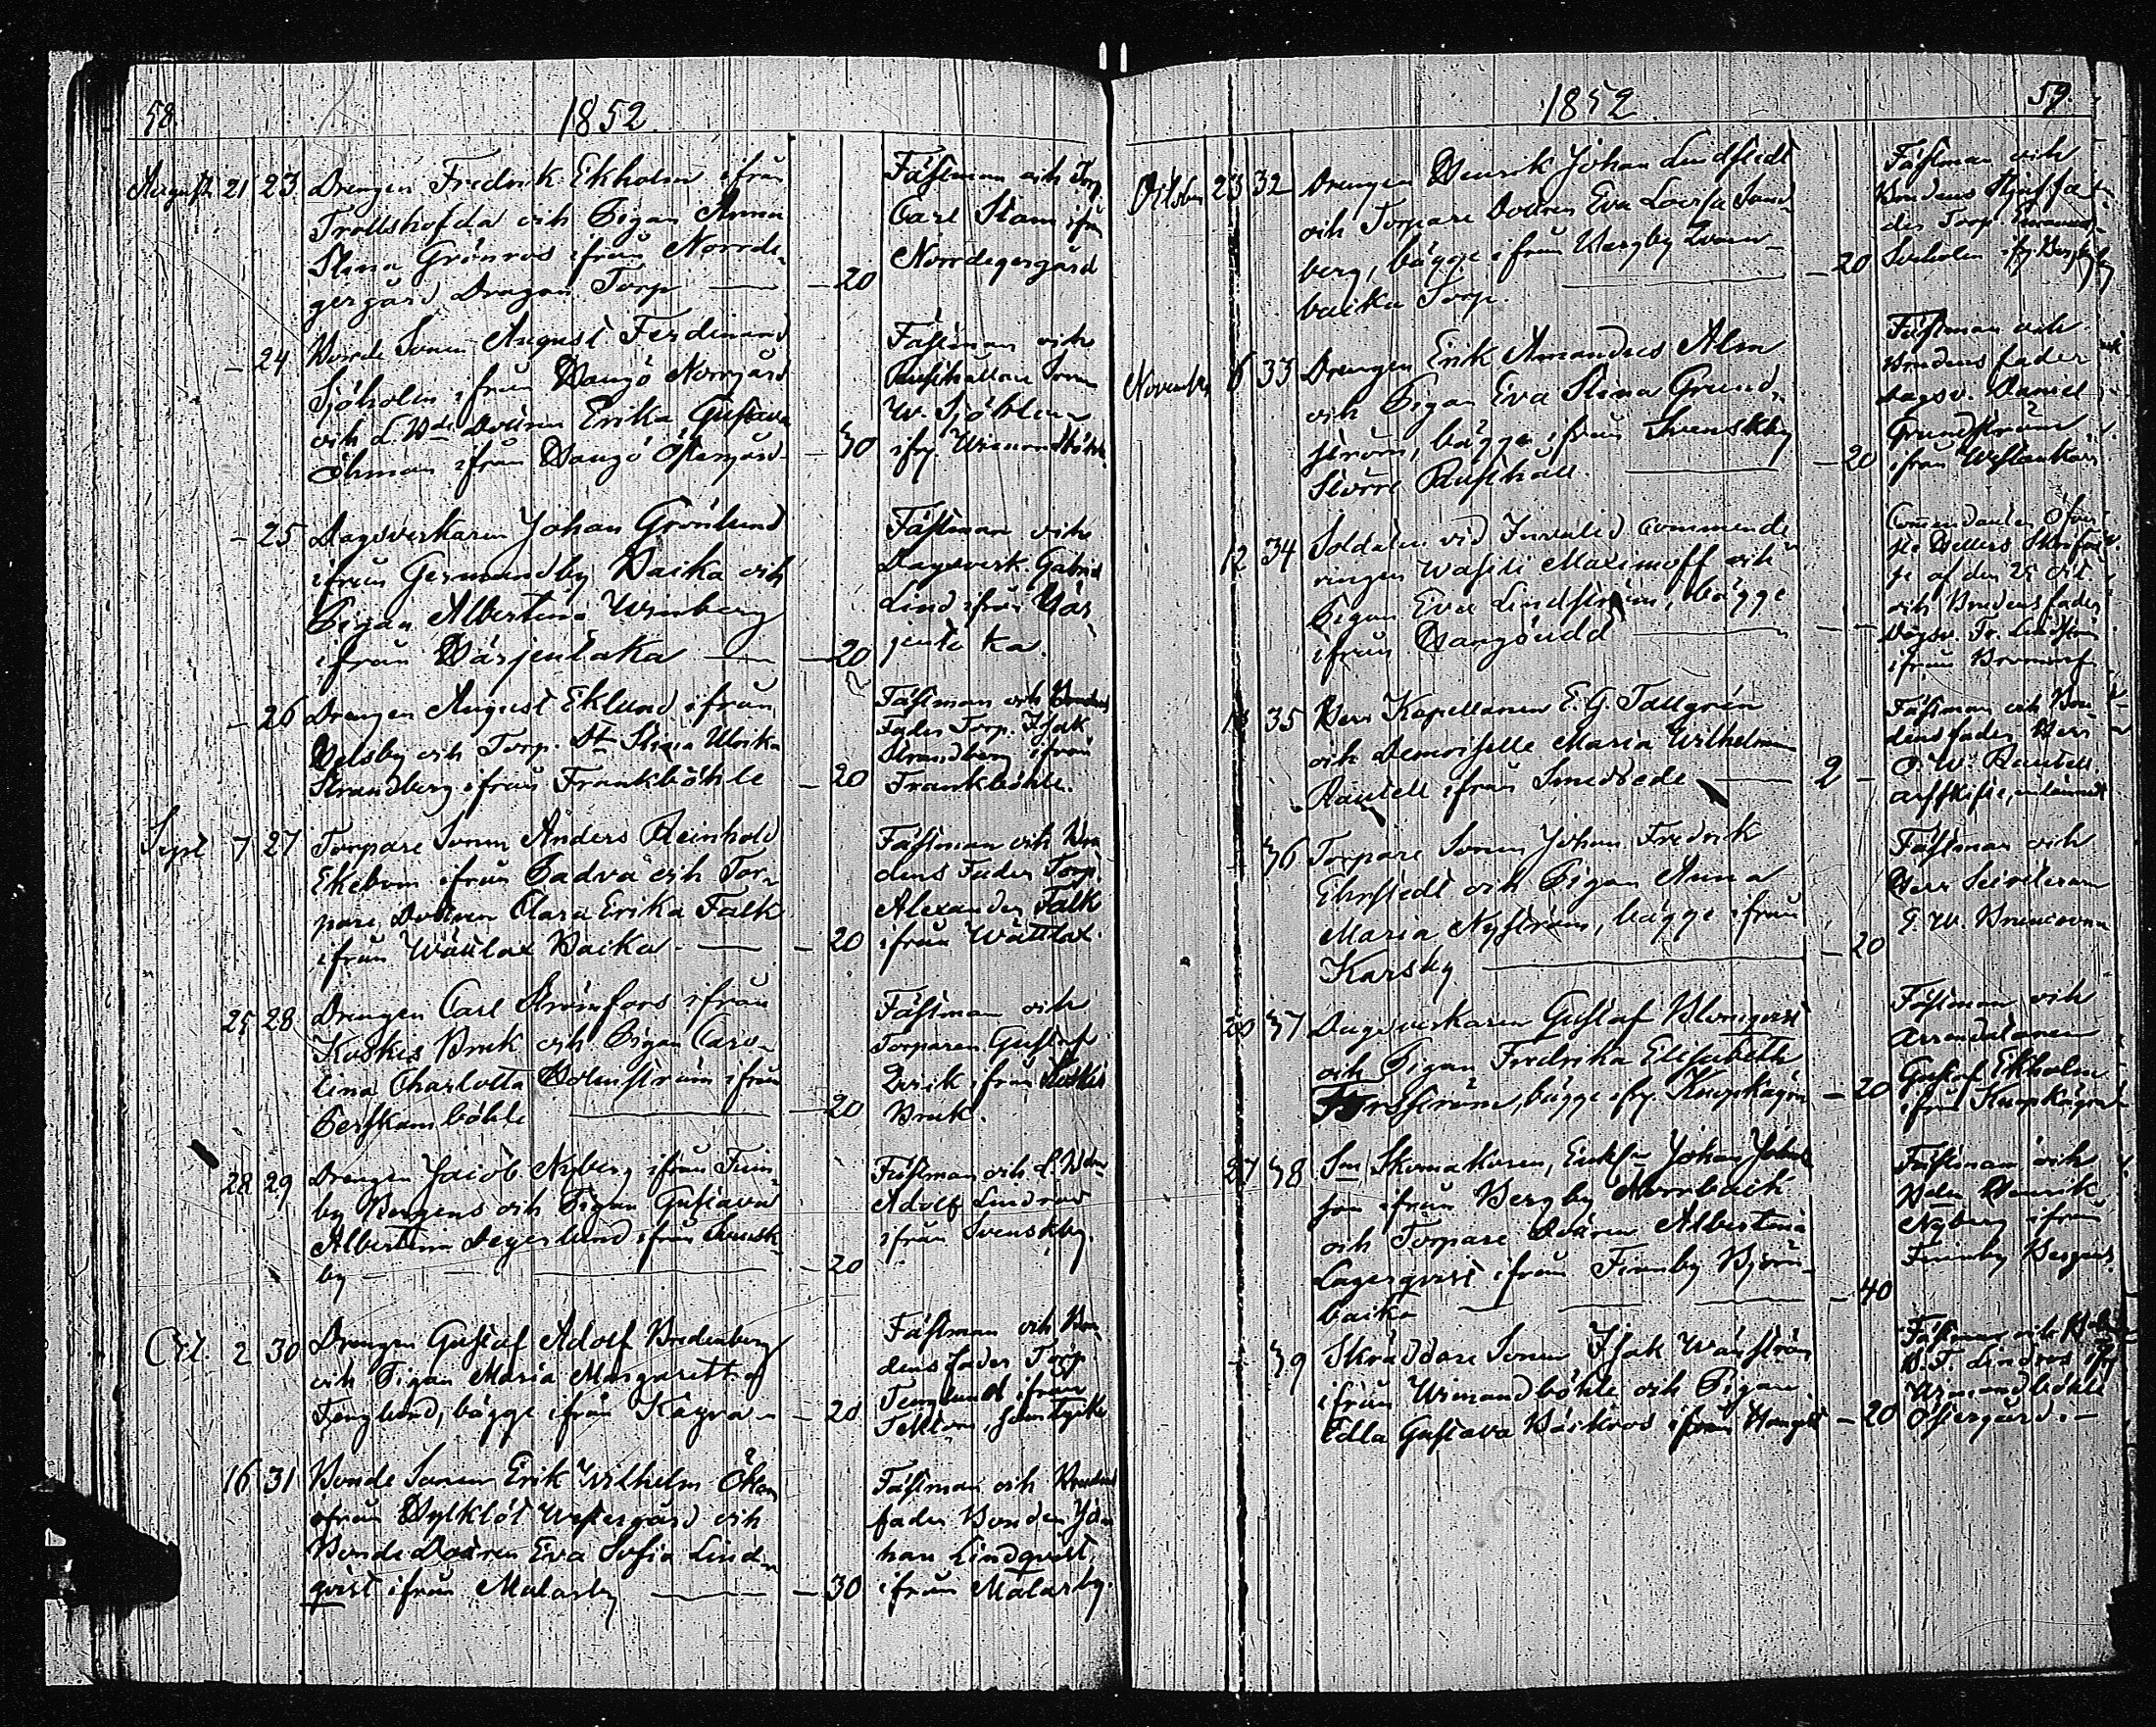 58.
1852.
Augusti 21 23 Drengen Fredrik Ekholm ifrån
Trollshofda och Pigan Anna
Stina Grönros ifrån Norrde-
gergård Dragon Torp — 20
Fästman och Torp.
Carl Stam ifrån
Norrdegergård
- 24 Bonde Sonen August Ferdinand
Sjöholm ifrån Hangö Norrgård
och L. Bde Dottren Erika Gustava
Öhman ifrån Hangö Östergård — 30
Fästman och
Rusthållare Sonen
W. Sjöblom
ifrn
- 25 Dagsverkaren Johan Grönlund
ifrån Germundby Backa och
Pigan Albertina Winberg
ifrån — 20
Fästman och
Dagsverk. Gabriel
Lind ifrån
- 26 Drengen August Eklund ifrån
och Torp. Dr Stina Ulrika
Strandberg ifrån Frankböhle — 20
Fästman och Brudens
Fader Torp. Isak
Strandberg ifrån
Frankböhle.
Sept 7 27 Torpare Sonen Anders Reinhold
Ekebom ifrån Padva och Tor-
pare Dottren Clara Erika Falk
ifrån Wättlax Backa — 20
Fästman och Bru-
dens Fader Torp.
Alexander Falk
ifrån Wättlax.
25 28 Drengen Carl Strömfors ifrån
Koskis Bruk och Pigan Caro-
lina Charlotta Holmström ifrån
Perskamböhle — 20
Fästman och
Torparen Gustaf
ifrån Koskis
Bruk.
28 29 Drengen Jacob Nyberg ifrån Finn-
by Bergens och Pigan Gustava
Albertina Degerlund ifrån Svensk-
by — 20
Fästman och L. Bdn
Adolf Lindroos
ifrån Svenskby.
Oct. 2 30 Drengen Gustaf Adolf Bredenberg
och Pigan Maria Margaretta
Tenglund, bägge ifrån Kagra — 20
Fästman och Bru-
dens fader Torp.
Tenglund ifrån
Tektom,
16 31 Bonde Sonen Erik Wilhelm Öhman
ifrån Westergård och
Bonde Dottren Eva Sofia Lind-
qvist ifrån Malarby — 30
Fästman och Brudens
fader Bonden Jo-
han Lindqvist,
ifrån Malarby.
1852.
59.
October 23 32 Drengen Henrik Johan Lindstedt
och Torpare Dottren Eva Lovisa Sand-
berg, bägge ifrån Bergby
backa Torp. — 20
Fästman och
Brudens Styffa-
der Torp.
- 
November 6 33 Drengen Erik Amandus Alm
och Pigan Eva Stina Grund-
ström, bägge ifrån Svenskby
Storre Rusthåll. — 20
Fästman och
Brudens fader
Dagsv. Daniel
Grundström
ifrån
12 34 Soldaten vid Invalid Commende-
ringen Wasili Maximoff och
Pigan Eva Lindström, bägge
ifrån Hangöudd —
Commendanten Öfver-
ste
af den 25 Oct
och Brudens fader
Dagsv. Fr. Lindström
ifrån Bromarf
35 Herr Kapellanen E. G. Tallgrén
och Demoiselle Maria Wilhelmina
ifrån Smedsede — 2 -
Fästman och Bru-
dens fader Herr
- 36 Torpare Sonen Johan Fredrik
Ehrstedt och Pigan Anna
Maria Nyström, bägge ifrån
Karsby — 20
Fästman och
Herr
G. W.
20 37 Dagsverkaren Gustaf Blomqvist
och Pigan Fredrika Elisabeth
Forsström, bägge ifrn — 20
Fästman och
Arrendatoren
Gustaf Ekholm
ifrån
27 38 Sn Skomakaren, Johan Johans-
son ifrån Bergby Norrback
och Torpare Dottren Albertina
Lagerqvist ifrån Finnby Björn-
backa — 40
Fästman och
Bdn Henrik
Nyberg ifrån
Finnby Bergens
- 39 Skräddare Sonen Isak Wänström
ifrån och Pigan
Edla Gustava Bäckros ifrån Hangö — 20
Fästman och
Lindros
Östergård. —